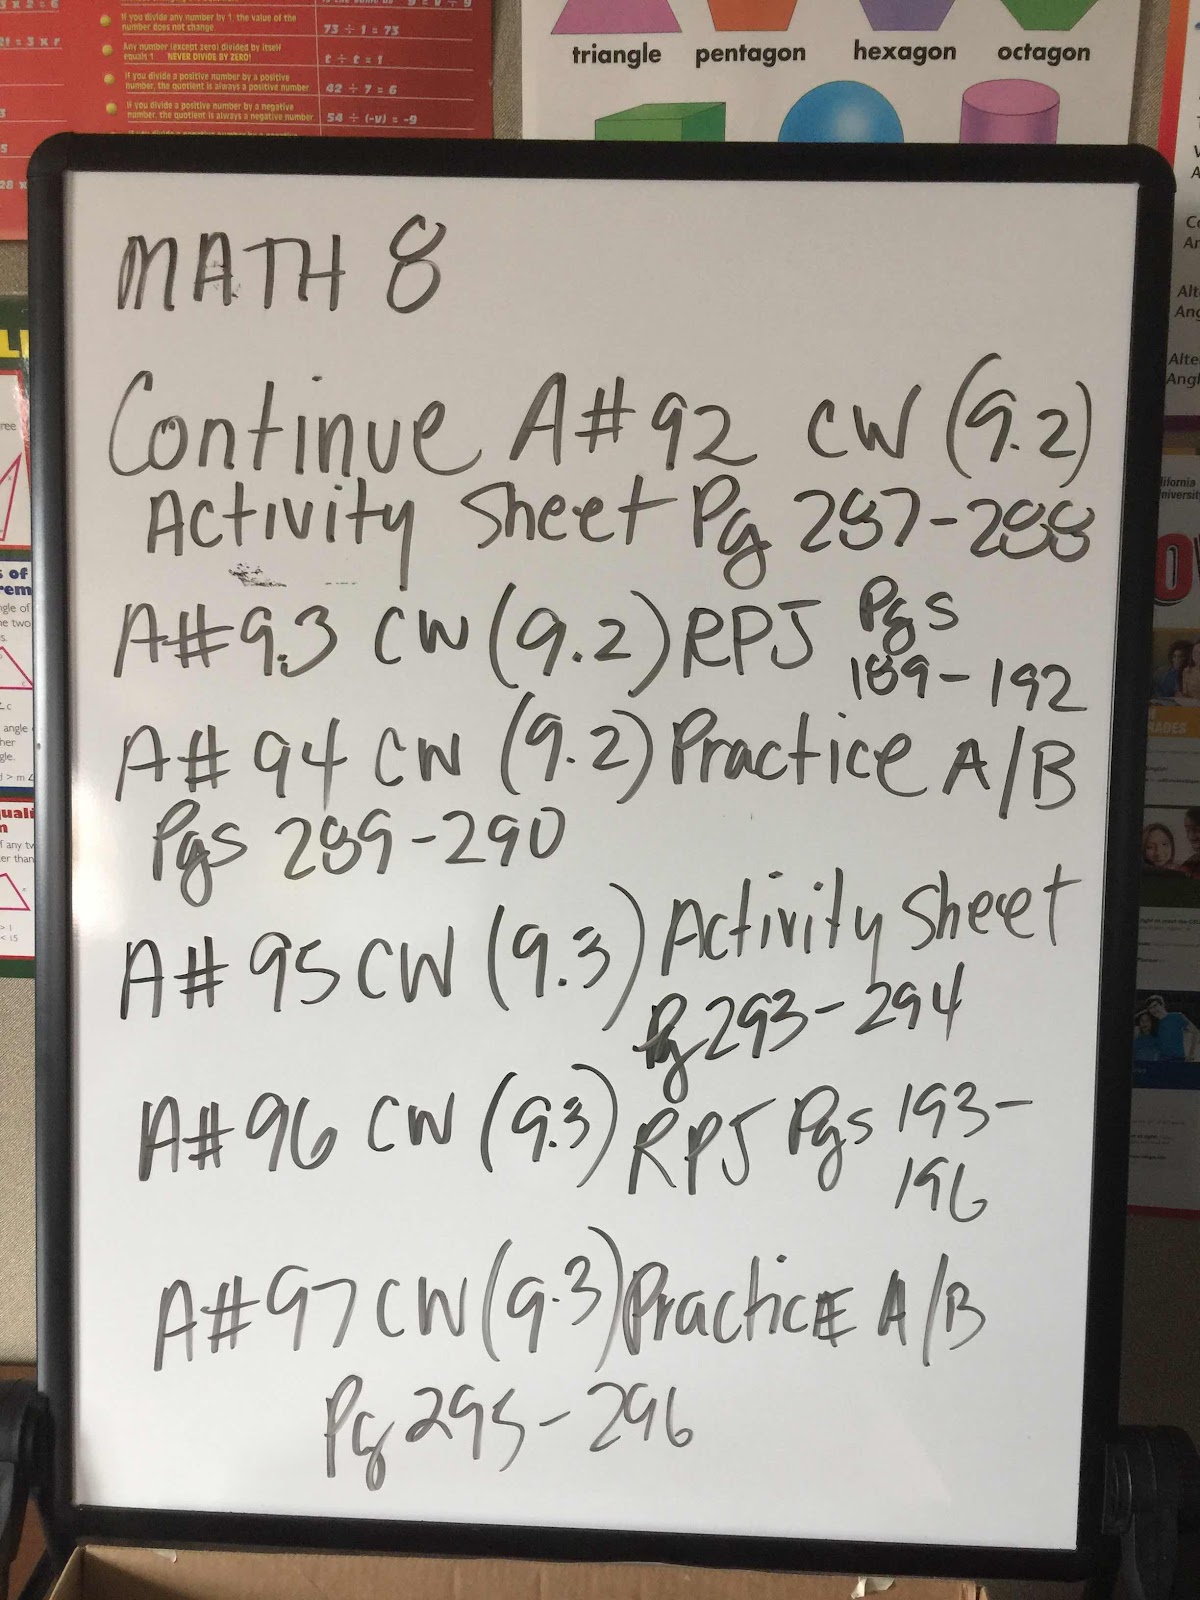 If you divide any number by 1, the value of the number does not change.
73 ÷ 1 = 73
Any number (except zero) divided by itself equals 1. NEVER DIVIDE BY ZERO!
t ÷ t = 1
If you divide a positive number by a positive number, the quotient is always a positive number.
42 ÷ 7 = 6
If you divide a positive number by a negative number, the quotient is always a negative number.
54 ÷ (-v) = -9
triangle pentagon hexagon octagon
MATH 8
Continue A# 92 CW (9.2)
Activity Sheet Pg 287-288
A# 9.3 CW (9.2) RPJ Pgs
189-192
A# 94 CW (9.2) Practice A/B
Pgs 289-290
A# 95 CW (9.3) Activity Sheet
Pg 293-294
A# 96 CW (9.3) RPJ Pgs 193-
196
A# 97 CW (9.3) Practice A/B
Pg 295-296